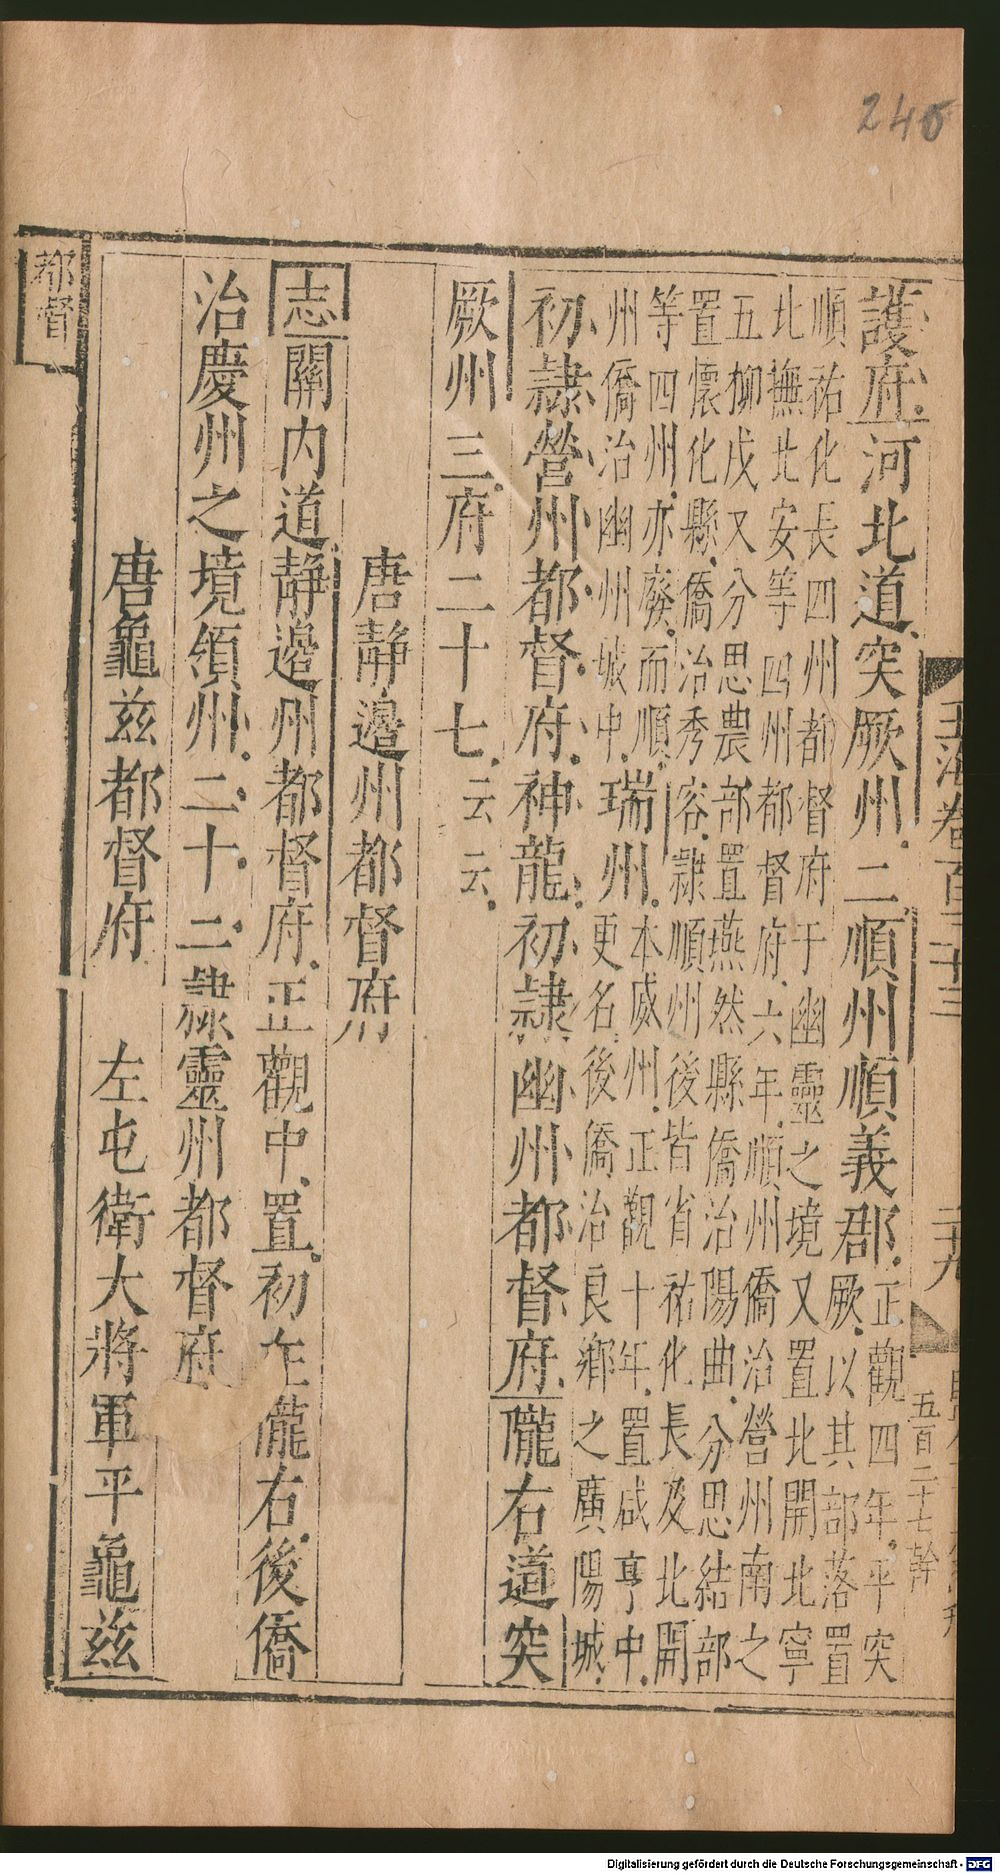 240
玉海卷百三十三
二十九
五百二十七幹
護府河北道突厥州二順州順義郡正觀四年平突
厥以其部落置
順祐化長四州都督府于幽靈之境又置北開北寧
北撫北安等四州都督府六年順州僑治營州南之
五柳戍又分思農部置燕然縣僑治陽曲分思結部
置懷化縣僑治秀容隷順州後皆省祐化長及北開
等四州亦廢而順
州僑治幽州城中瑞州本威州正觀十年置咸亨中
更名後僑治良鄉之廣陽城
初隷營州都督府神龍初隷幽州都督府隴右道突
厥州三府二十七云云
唐靜邊州都督府
志關内道靜邊州都督府正觀中置初在隴右後僑
治慶州之境領州二十二隷靈州都督府
唐龜兹都督府 左屯衛大將軍平龜兹
都督
Digitalisierung gefördert durch die Deutsche Forschungsgemeinschaft - DFG